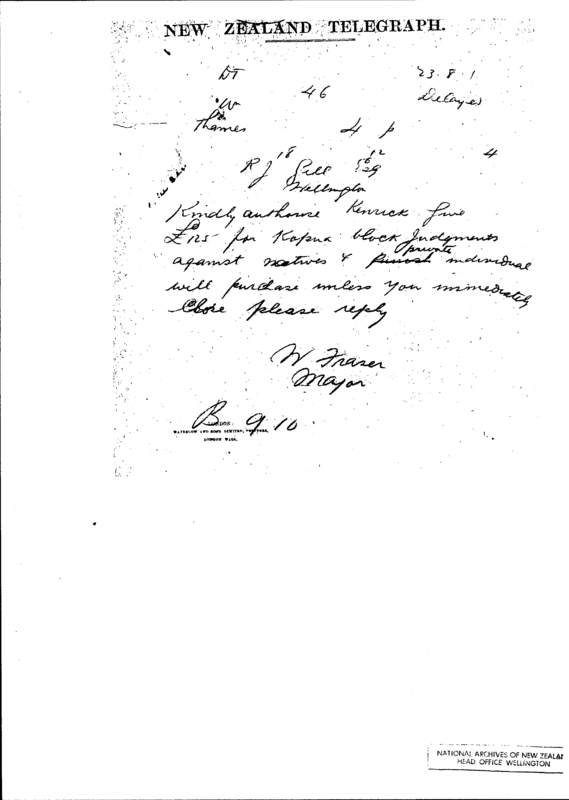 NEW ZEALAND TELEGRAPH.
DT 23.8.1
46 Delayed
W
Thames 4 p
18 12 4
R J Gill Esq
Wellington
Kindly authorise Kenrick give
£125 for Kapua block Judgments
private
against natives & individual
will purchase unless you immediately
Close please reply
W Fraser
Mayor
B 9.10
LONDON
WATERLOW AND SONS LIMITED, PRINTERS,
LONDON WALL.
NATIONAL ARCHIVES OF NEW ZEALA
HEAD OFFICE WELLINGTON